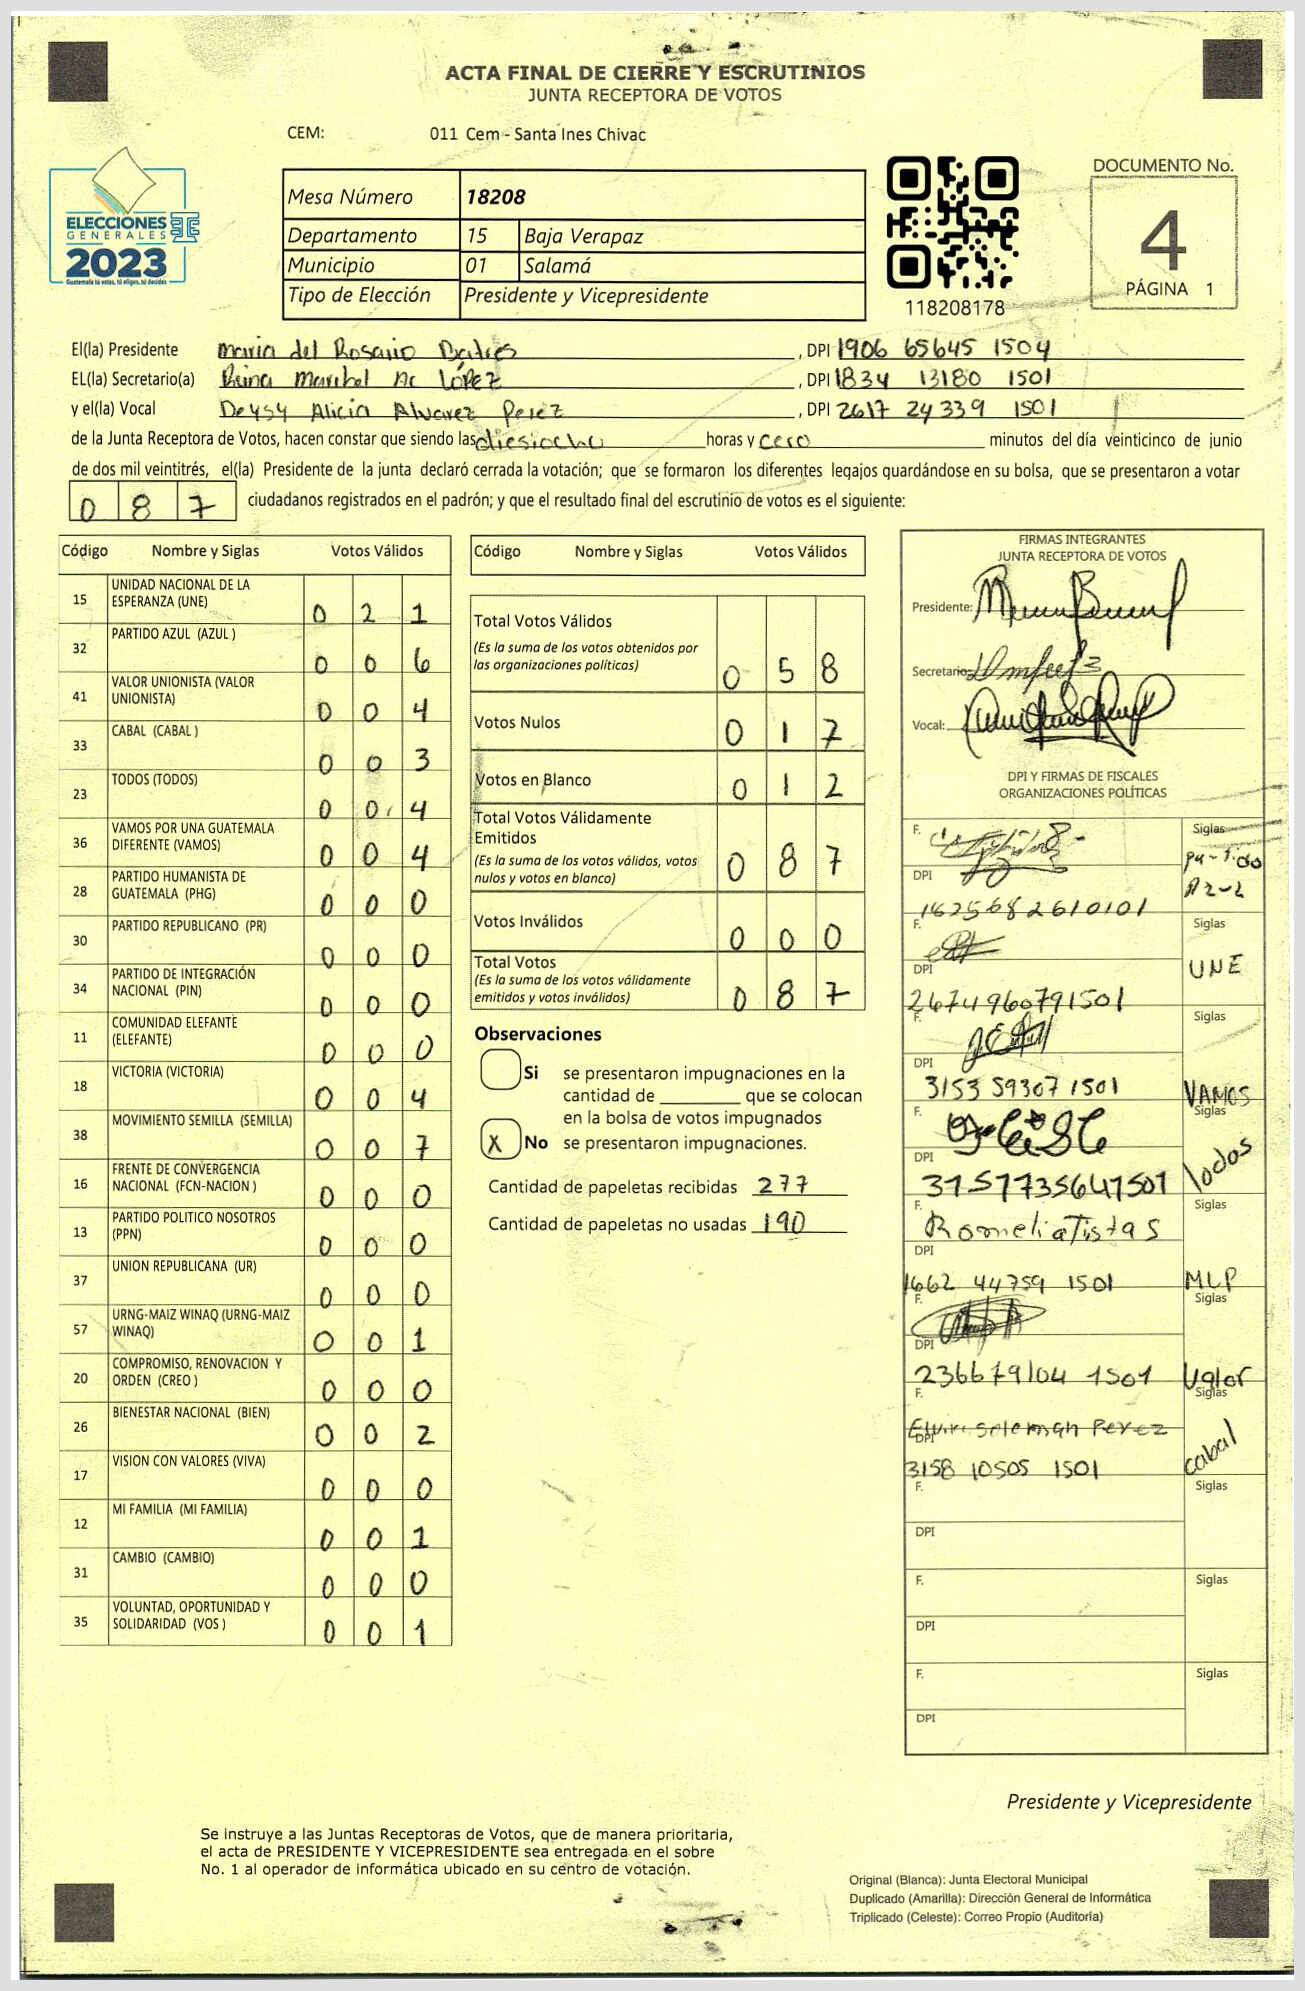 ACTA FINAL DE CIERRE Y ESCRUTINIOS
JUNTA RECEPTORA DE VOTOS
CEM: 011 Cem - Santa Ines Chivac
ELECCIONES
GENERALES
2023
Guatemala tú votas, tú eliges, tú decides
Mesa Número 18208
Departamento 15 Baja Verapaz
Municipio 01 Salamá
Tipo de Elección Presidente y Vicepresidente
118208178
DOCUMENTO No.
4
PÁGINA 1
El(la) Presidente Maria del Rosario Batres , DPI 1906 65645 1504
EL(la) Secretario(a) Reina Maribel Ac López , DPI 1834 13180 1501
y el(la) Vocal Deysy Alicia Alvarez Perez , DPI 2617 24339 1501
de la Junta Receptora de Votos, hacen constar que siendo las diesiocho horas y cero minutos del día veinticinco de junio
de dos mil veintitrés, el(la) Presidente de la junta declaró cerrada la votación; que se formaron los diferentes legajos guardándose en su bolsa, que se presentaron a votar
0 8 7 ciudadanos registrados en el padrón; y que el resultado final del escrutinio de votos es el siguiente:
Código Nombre y Siglas Votos Válidos
15 UNIDAD NACIONAL DE LA
ESPERANZA (UNE) 0 2 1
32 PARTIDO AZUL (AZUL ) 0 0 6
41 VALOR UNIONISTA (VALOR
UNIONISTA) 0 0 4
33 CABAL (CABAL ) 0 0 3
23 TODOS (TODOS) 0 0 4
36 VAMOS POR UNA GUATEMALA
DIFERENTE (VAMOS) 0 0 4
28 PARTIDO HUMANISTA DE
GUATEMALA (PHG) 0 0 0
30 PARTIDO REPUBLICANO (PR) 0 0 0
34 PARTIDO DE INTEGRACIÓN
NACIONAL (PIN) 0 0 0
11 COMUNIDAD ELEFANTE
(ELEFANTE) 0 0 0
18 VICTORIA (VICTORIA) 0 0 4
38 MOVIMIENTO SEMILLA (SEMILLA) 0 0 7
16 FRENTE DE CONVERGENCIA
NACIONAL (FCN-NACION ) 0 0 0
13 PARTIDO POLITICO NOSOTROS
(PPN) 0 0 0
37 UNION REPUBLICANA (UR) 0 0 0
57 URNG-MAIZ WINAQ (URNG-MAIZ
WINAQ) 0 0 1
20 COMPROMISO, RENOVACION Y
ORDEN (CREO ) 0 0 0
26 BIENESTAR NACIONAL (BIEN) 0 0 2
17 VISION CON VALORES (VIVA) 0 0 0
12 MI FAMILIA (MI FAMILIA) 0 0 1
31 CAMBIO (CAMBIO) 0 0 0
35 VOLUNTAD, OPORTUNIDAD Y
SOLIDARIDAD (VOS ) 0 0 1
Código Nombre y Siglas Votos Válidos
Total Votos Válidos
(Es la suma de los votos obtenidos por
las organizaciones políticas) 0 5 8
Votos Nulos 0 1 7
Votos en Blanco 0 1 2
Total Votos Válidamente
Emitidos
(Es la suma de los votos válidos, votos
nulos y votos en blanco) 0 8 7
Votos Inválidos 0 0 0
Total Votos
(Es la suma de los votos válidamente
emitidos y votos inválidos) 0 8 7
Observaciones
Si se presentaron impugnaciones en la
cantidad de ________ que se colocan
en la bolsa de votos impugnados
X No se presentaron impugnaciones.
Cantidad de papeletas recibidas 277
Cantidad de papeletas no usadas 190
FIRMAS INTEGRANTES
JUNTA RECEPTORA DE VOTOS
Presidente:
Secretario:
Vocal:
DPI Y FIRMAS DE FISCALES
ORGANIZACIONES POLÍTICAS
F. Siglas
DPI
1625682610101
F. Siglas
UNE
DPI
2674960791501
F. Siglas
DPI
3153 59307 1501 VAMOS
F. Siglas
DPI Todos
3157735641501
F. Romelia Tistas Siglas
DPI
1662 44759 1501 MLP
F. Siglas
DPI
236679104 1501 Valor
F. Siglas
Perez
DPI cabal
3158 10505 1501
F. Siglas
DPI
F. Siglas
DPI
F. Siglas
DPI
Presidente y Vicepresidente
Se instruye a las Juntas Receptoras de Votos, que de manera prioritaria,
el acta de PRESIDENTE Y VICEPRESIDENTE sea entregada en el sobre
No. 1 al operador de informática ubicado en su centro de votación.
Original (Blanca): Junta Electoral Municipal
Duplicado (Amarilla): Dirección General de Informática
Triplicado (Celeste): Correo Propio (Auditoría)